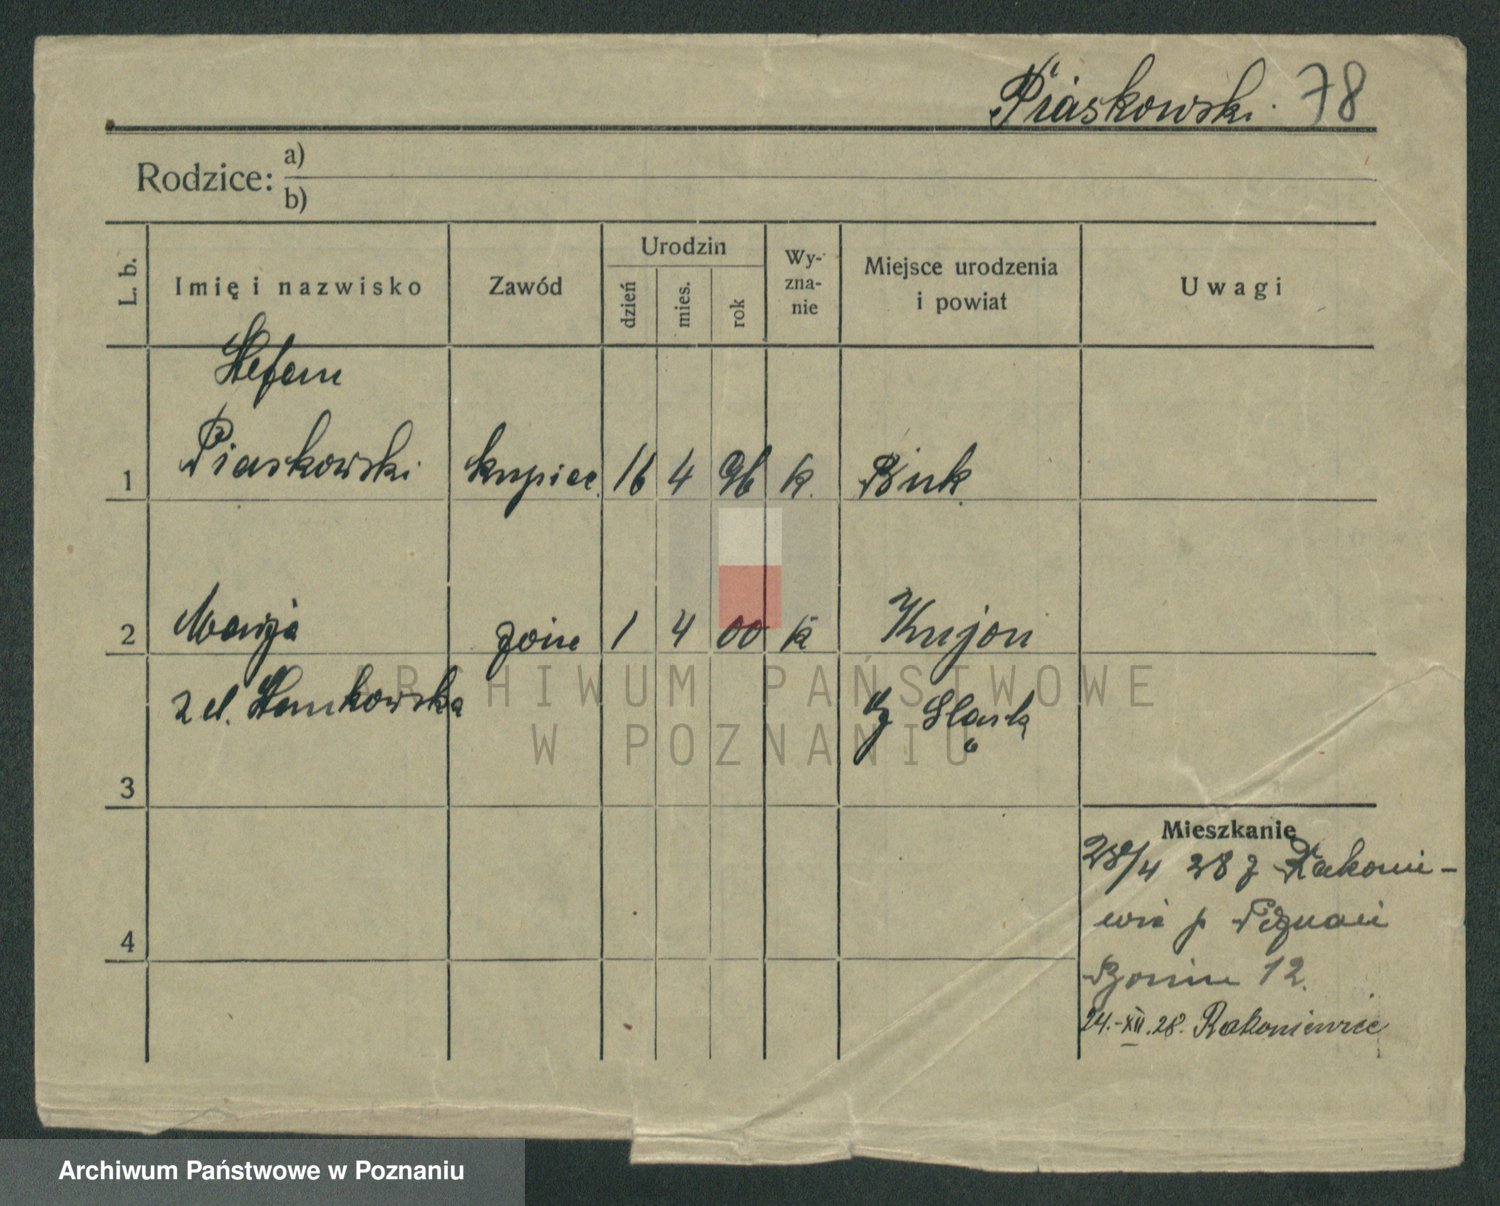 Piaskowski. 78
Rodzice: a)
b)
L. b.
Imię i nazwisko
Zawód
Urodzin
dzień
mies.
rok
Wy-
zna-
nie
Miejsce urodzenia
i powiat
Uwagi
Stefan
1 Piaskowski kupiec 16 4 96 k. Buk
2 Marja żona 1 4 00 k
z d.
Śląsk
3
4
Mieszkanie
28/4 28 z Rakonie-
wic p
12.
24.-XII.28. Rakoniewice
ARCHIWUM PAŃSTWOWE
W POZNANIU
Archiwum Państwowe w Poznaniu